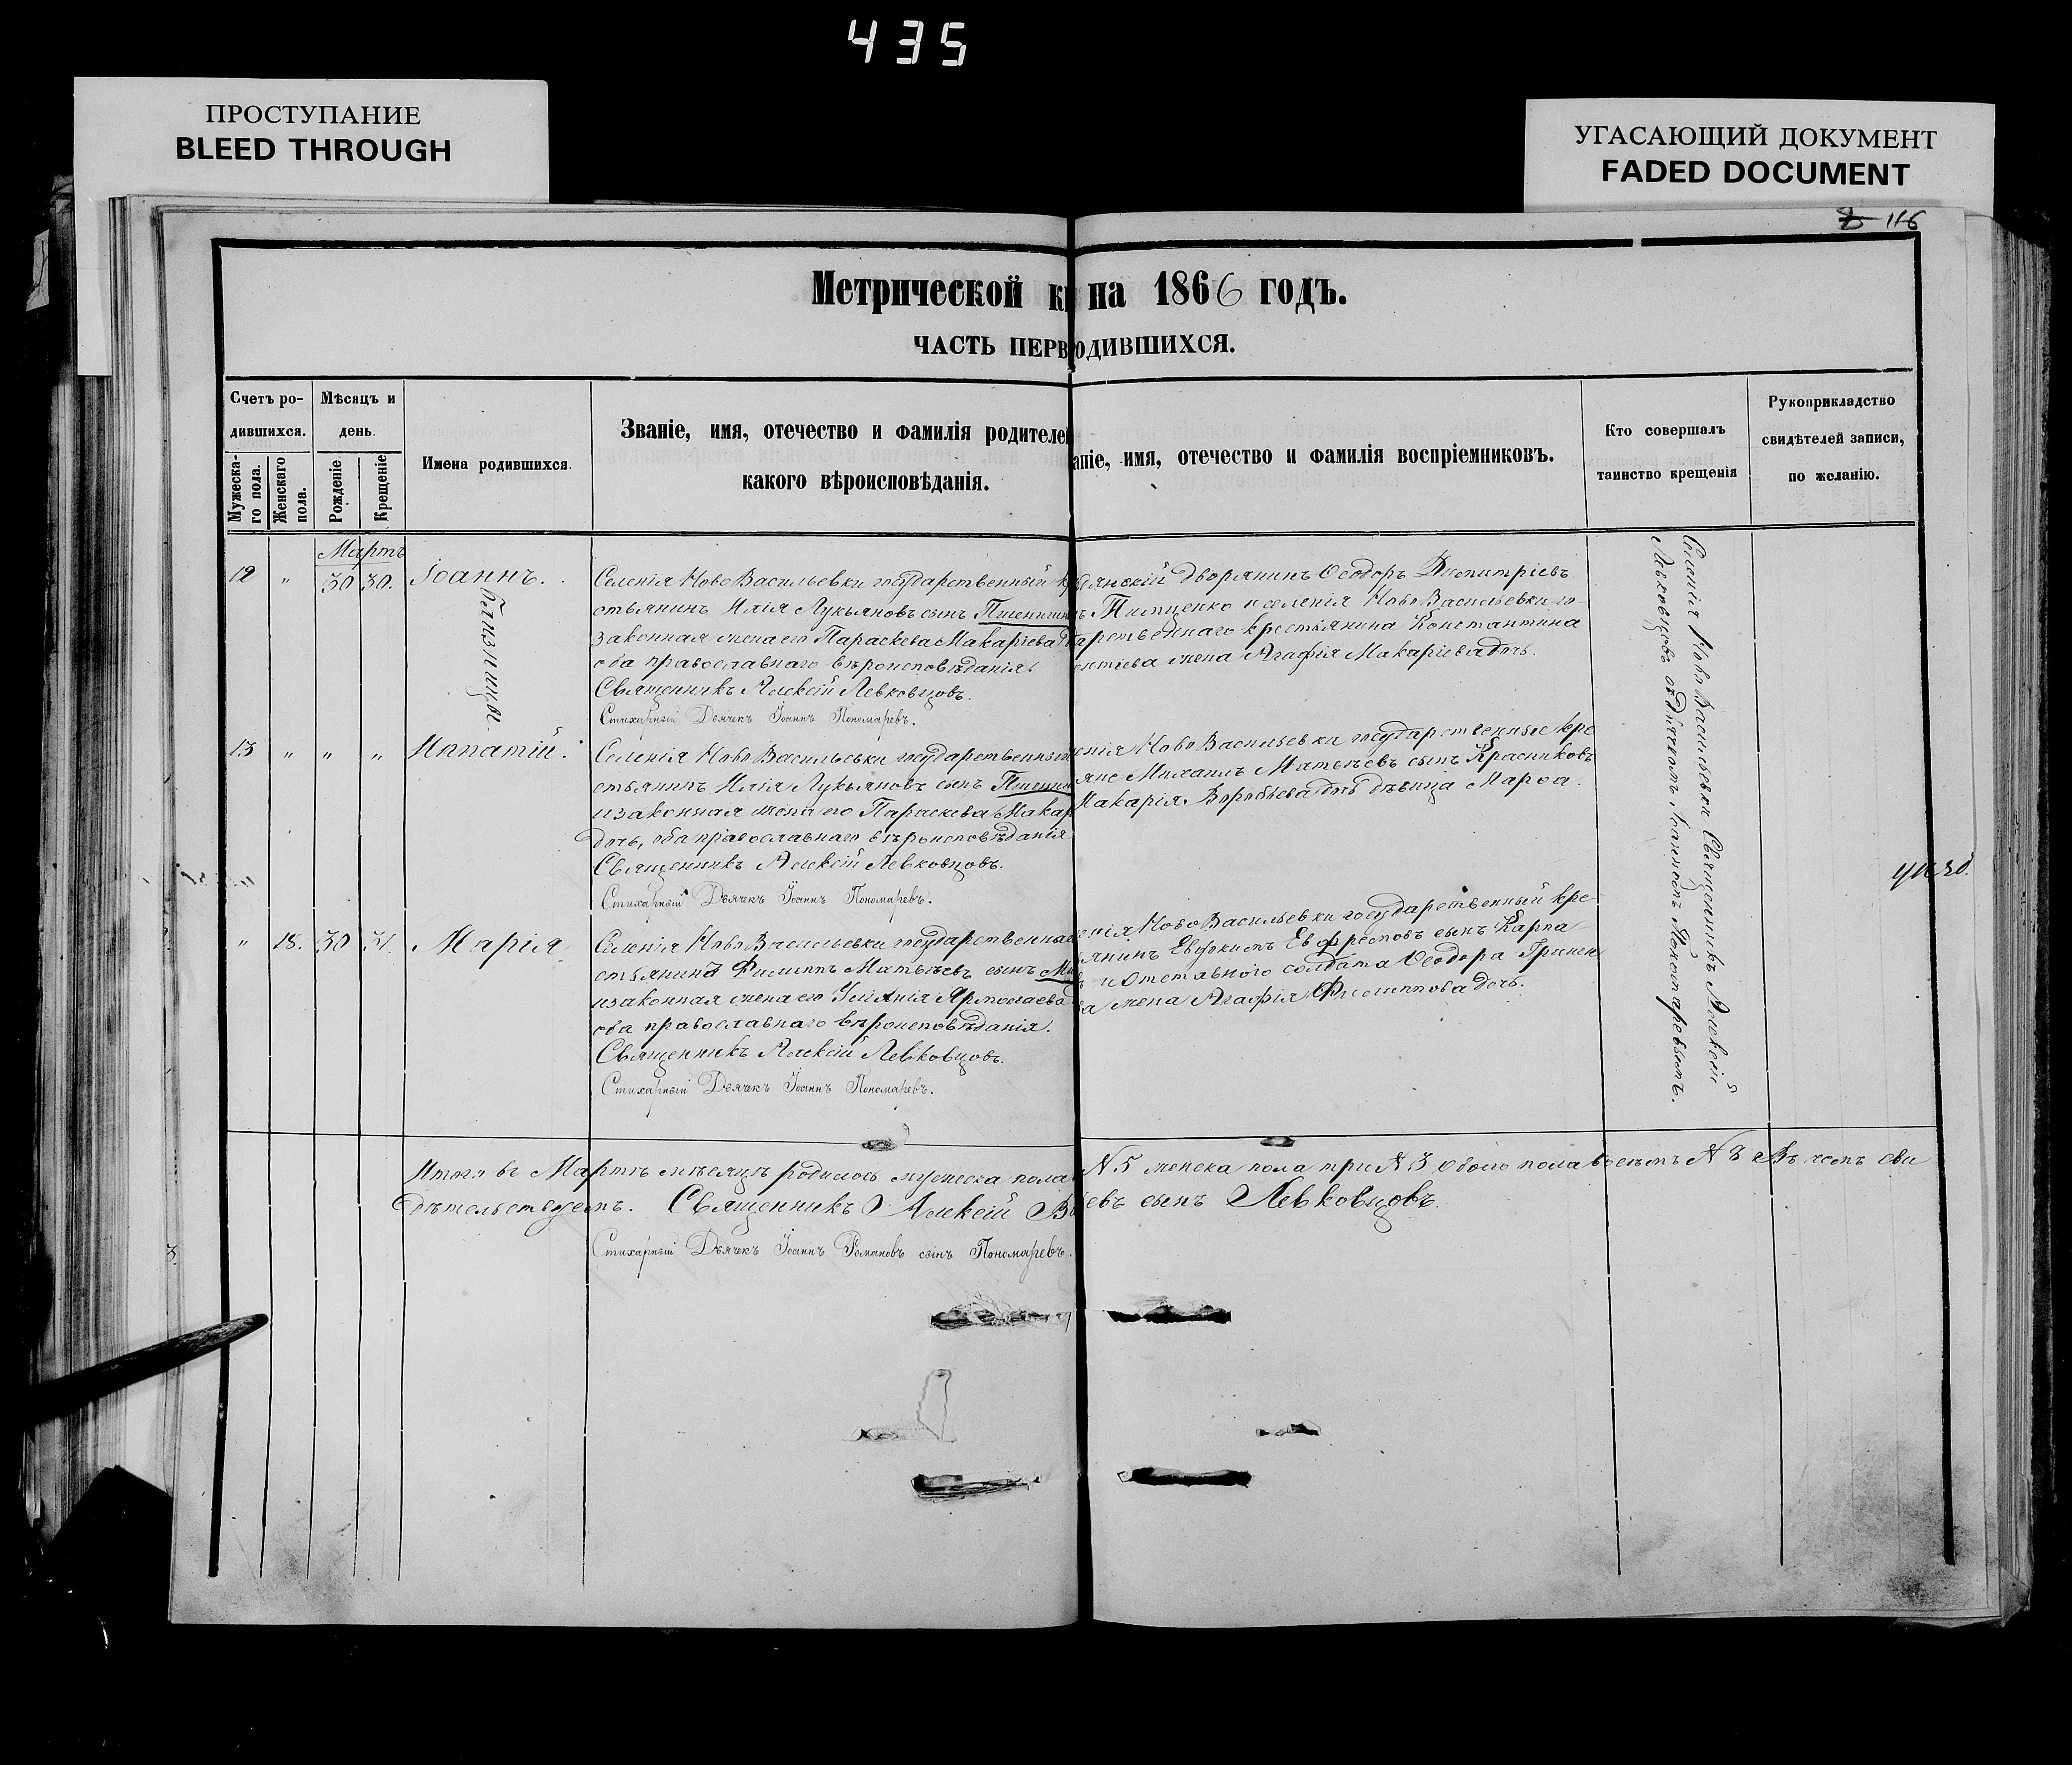 435
ПРОСТУПАНИЕ
BLEED THROUGH
УГАСАЮЩИЙ ДОКУМЕНТ
FADED DOCUMENT
116
Метрической к на 1866 годъ.
ЧАСТЬ ПЕРВ ОДИВШИХСЯ.
Счетъ ро-
дившихся.
Мужеска-
го пола.
Женскаго
пола.
Мѣсяцъ и
день.
Рожденіе
Крещеніе
Имена родившихся.
Званіе, имя, отечество и фамилія родителей
какого вѣроисповѣданія.
аніе, имя, отечество и фамилія воспріемниковъ.
Кто совершалъ
таинство крещенія
Рукоприкладство
свидѣтелей записи,
по желанію.
Мартъ
12 " 30 30. Іоаннъ.
близницы
Селенія НовоВасильевки государственный кр
стьянинъ Илія Лукьяновъ сынъ Пшенишн
законная жена его Параскева Макаріева
оба православнаго вѣроисповѣданія.
Священникъ Алексій Левковцовъ.
Стихарный Дьячекъ Іоаннъ Пономаревъ.
дворянинъ Ѳеодоръ Димитріевъ
Тимценко и селенія НовоВасильевки го-
дарственнаго крестьянина Константина
жена Агафія Макаріева дочь.
Селенія НовоВасильевки Священникъ Алексій
Левковцовъ съ Дьячкомъ Іоанномъ Пономаревымъ.
13 " " " Ипатій.
Селенія НовоВасильевки государственный
стьянинъ Илія Лукьяновъ сынъ Пшени
и законная жена его Параскева Макар
дочь, оба православнаго вѣроисповѣданія
Священникъ Алексій Левковцовъ.
Стихарный Дьячекъ Іоаннъ Пономаревъ.
енія НовоВасильевки государственные кре
яне Михаилъ Матвѣевъ сынъ Красниковъ
Макарія Воробьева дочь дѣвица Марѳа.
" 18. 30 31 Марія
Селенія НовоВасильевки государственный
стьянинъ Филиппъ Матвѣевъ сынъ Ми
и законная жена его Уліянія Ярмолаева
оба православнаго вѣроисповѣданія.
Священникъ Алексій Левковцовъ.
Стихарный Дьячекъ Іоаннъ Пономаревъ.
енія НовоВасильевки государственный кре-
янинъ Евфкистъ сынъ Карпа
и отставного солдата Ѳеодора Гринен
ва жена Агафія Филиппова дочь.
Итого въ Мартѣ мѣсяцѣ родилось мужеска пола N 5 женска пола три N 3 обоего пола восемь N 8 Въ чемъ сви
дѣтельствуемъ. Священникъ Алексій В евъ сынъ Левковцовъ.
Стихарный Дьячекъ Іоаннъ Романовъ сынъ Пономаревъ.